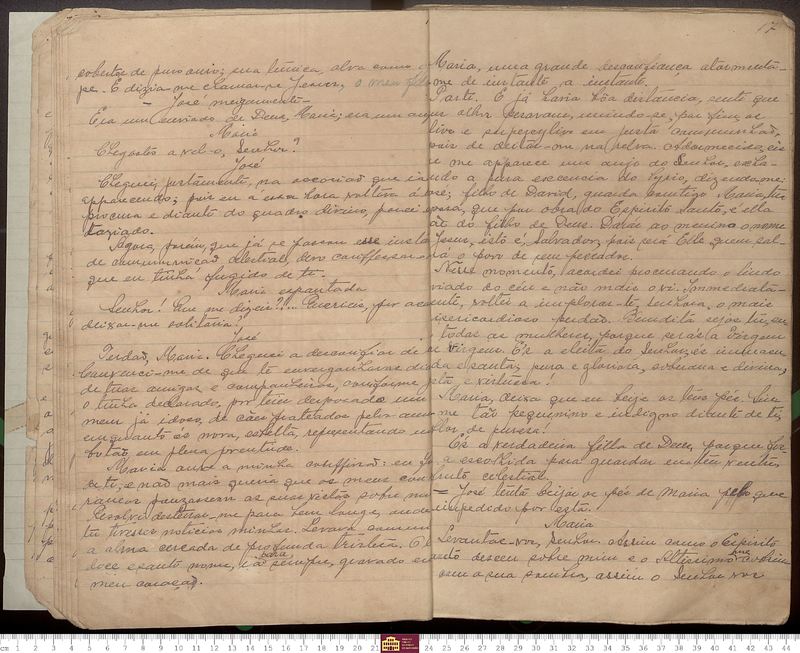 cobertas de puro ouro; sua túnica, alva como
pe. E dizia-me chamar-se Jesus, o meu filho
– José meigamente –
Era um enviado de Deus, Maria; era um anjo
Maria
Chegastes a vel-o, Senhor?
José
Cheguei, justamente, na occasião que ia
apparecendo; pois eu a essa hora voltava á
procura e diante do quadro divino, fiquei
tasiado.
Agora, porém, que já se passou esse insta
de communicação celestial, devo confessar
que eu tinha fugido de ti.
Maria espantada
Senhor! Que me dizeis?!... Querieis, por a
deixar-me solitaria?
José
Perdão, Maria. Cheguei a desconfiar de
Convenci-me de que te envergonhavas di
de tuas amigas e companheiras, conforme
o tinha declarado, por teres desposado um
mem já idoso, de cãs prateadas pelos annos
emquanto és nova, esbelta, representando um
botão em plena juventude.
Maria, ouve a minha confissão: eu
de ti, e não mais queria que os meus
rancos pousassem as suas vistas sobre mi
Resolvi desterrar-me para bem longe, onde
tu tivesses noticias minhas. Levava commi
a alma cercada de profunda tristeza. O
doce e santo nome, ia para sempre, gravado em
meu coração.
17
Maria, uma grande desconfiança atormenta-
me de instante a instante.
Parti. E já havia bôa distância, senti que
os olhos pesavam, unindo-se, por fim, ao
e me apparece um anjo do Senhor, excla-
dizendo-me:
José, filho de David, guarda comtigo Maria, tua
esposa, que por obra do Espirito Santo, é ella
mãe do filho de Deus. Darás ao menino o nome
Jesus, isto é, Salvador, pois será Elle quem sal-
vará o povo de seus peccados.
Nesse momento, acordei procurando o lindo
enviado do céu e não mais o vi. Immediata-
mente, voltei a implorar-te, Senhora, o mais
misericordioso perdão. Bemdita sejas tu, en-
tre todas as mulheres, porque serás a Virgem
Virgem. És a eleita do Senhor, és immacu-
lada e santa, pura e gloriosa, soberana e divina,
e virtuosa!
Maria, deixa que eu beije os teus pés. Sin
me tão pequenino e indigno diante de ti,
flor de pureza!
És a verdadeira filha de Deus, porque fos-
te a escolhida para guardar em teu ventre
fruto celestial.
– José tenta beijar os pés de Maria pelo que
impedido por esta.
Maria
Levantae-vos, Senhor. Assim como o Espirito
Santo desceu sobre mim e o Altissimo me cobriu
com a sua sombra, assim o Senhor vos
cm 1 2 3 4 5 6 7 8 9 10 11 12 13 14 15 16 17 18 19 20 21 24 25 26 27 28 29 30 31 32 33 34 35 36 37 38 39 40 41 42 43 44